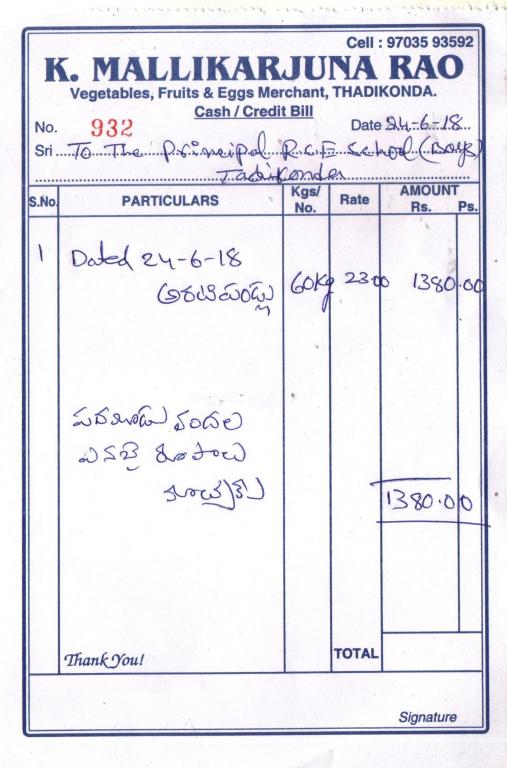 Cell : 97035 93592
K. MALLIKARJUNA RAO
Vegetables, Fruits & Eggs Merchant, THADIKONDA.
Cash / Credit Bill
No. 932 Date 24-6-18
Sri To The Principal R.C.E School (Boys)
Tadikonda
S.No. PARTICULARS Kgs/ No. Rate AMOUNT Rs. Ps.
1 Dated 24-6-18
అరటిపండ్లు 60Kg 23.00 1380.00
పదమూడు వందల
ఎనబై రూపాలు
మాత్రమే 1380.00
Thank You! TOTAL
Signature